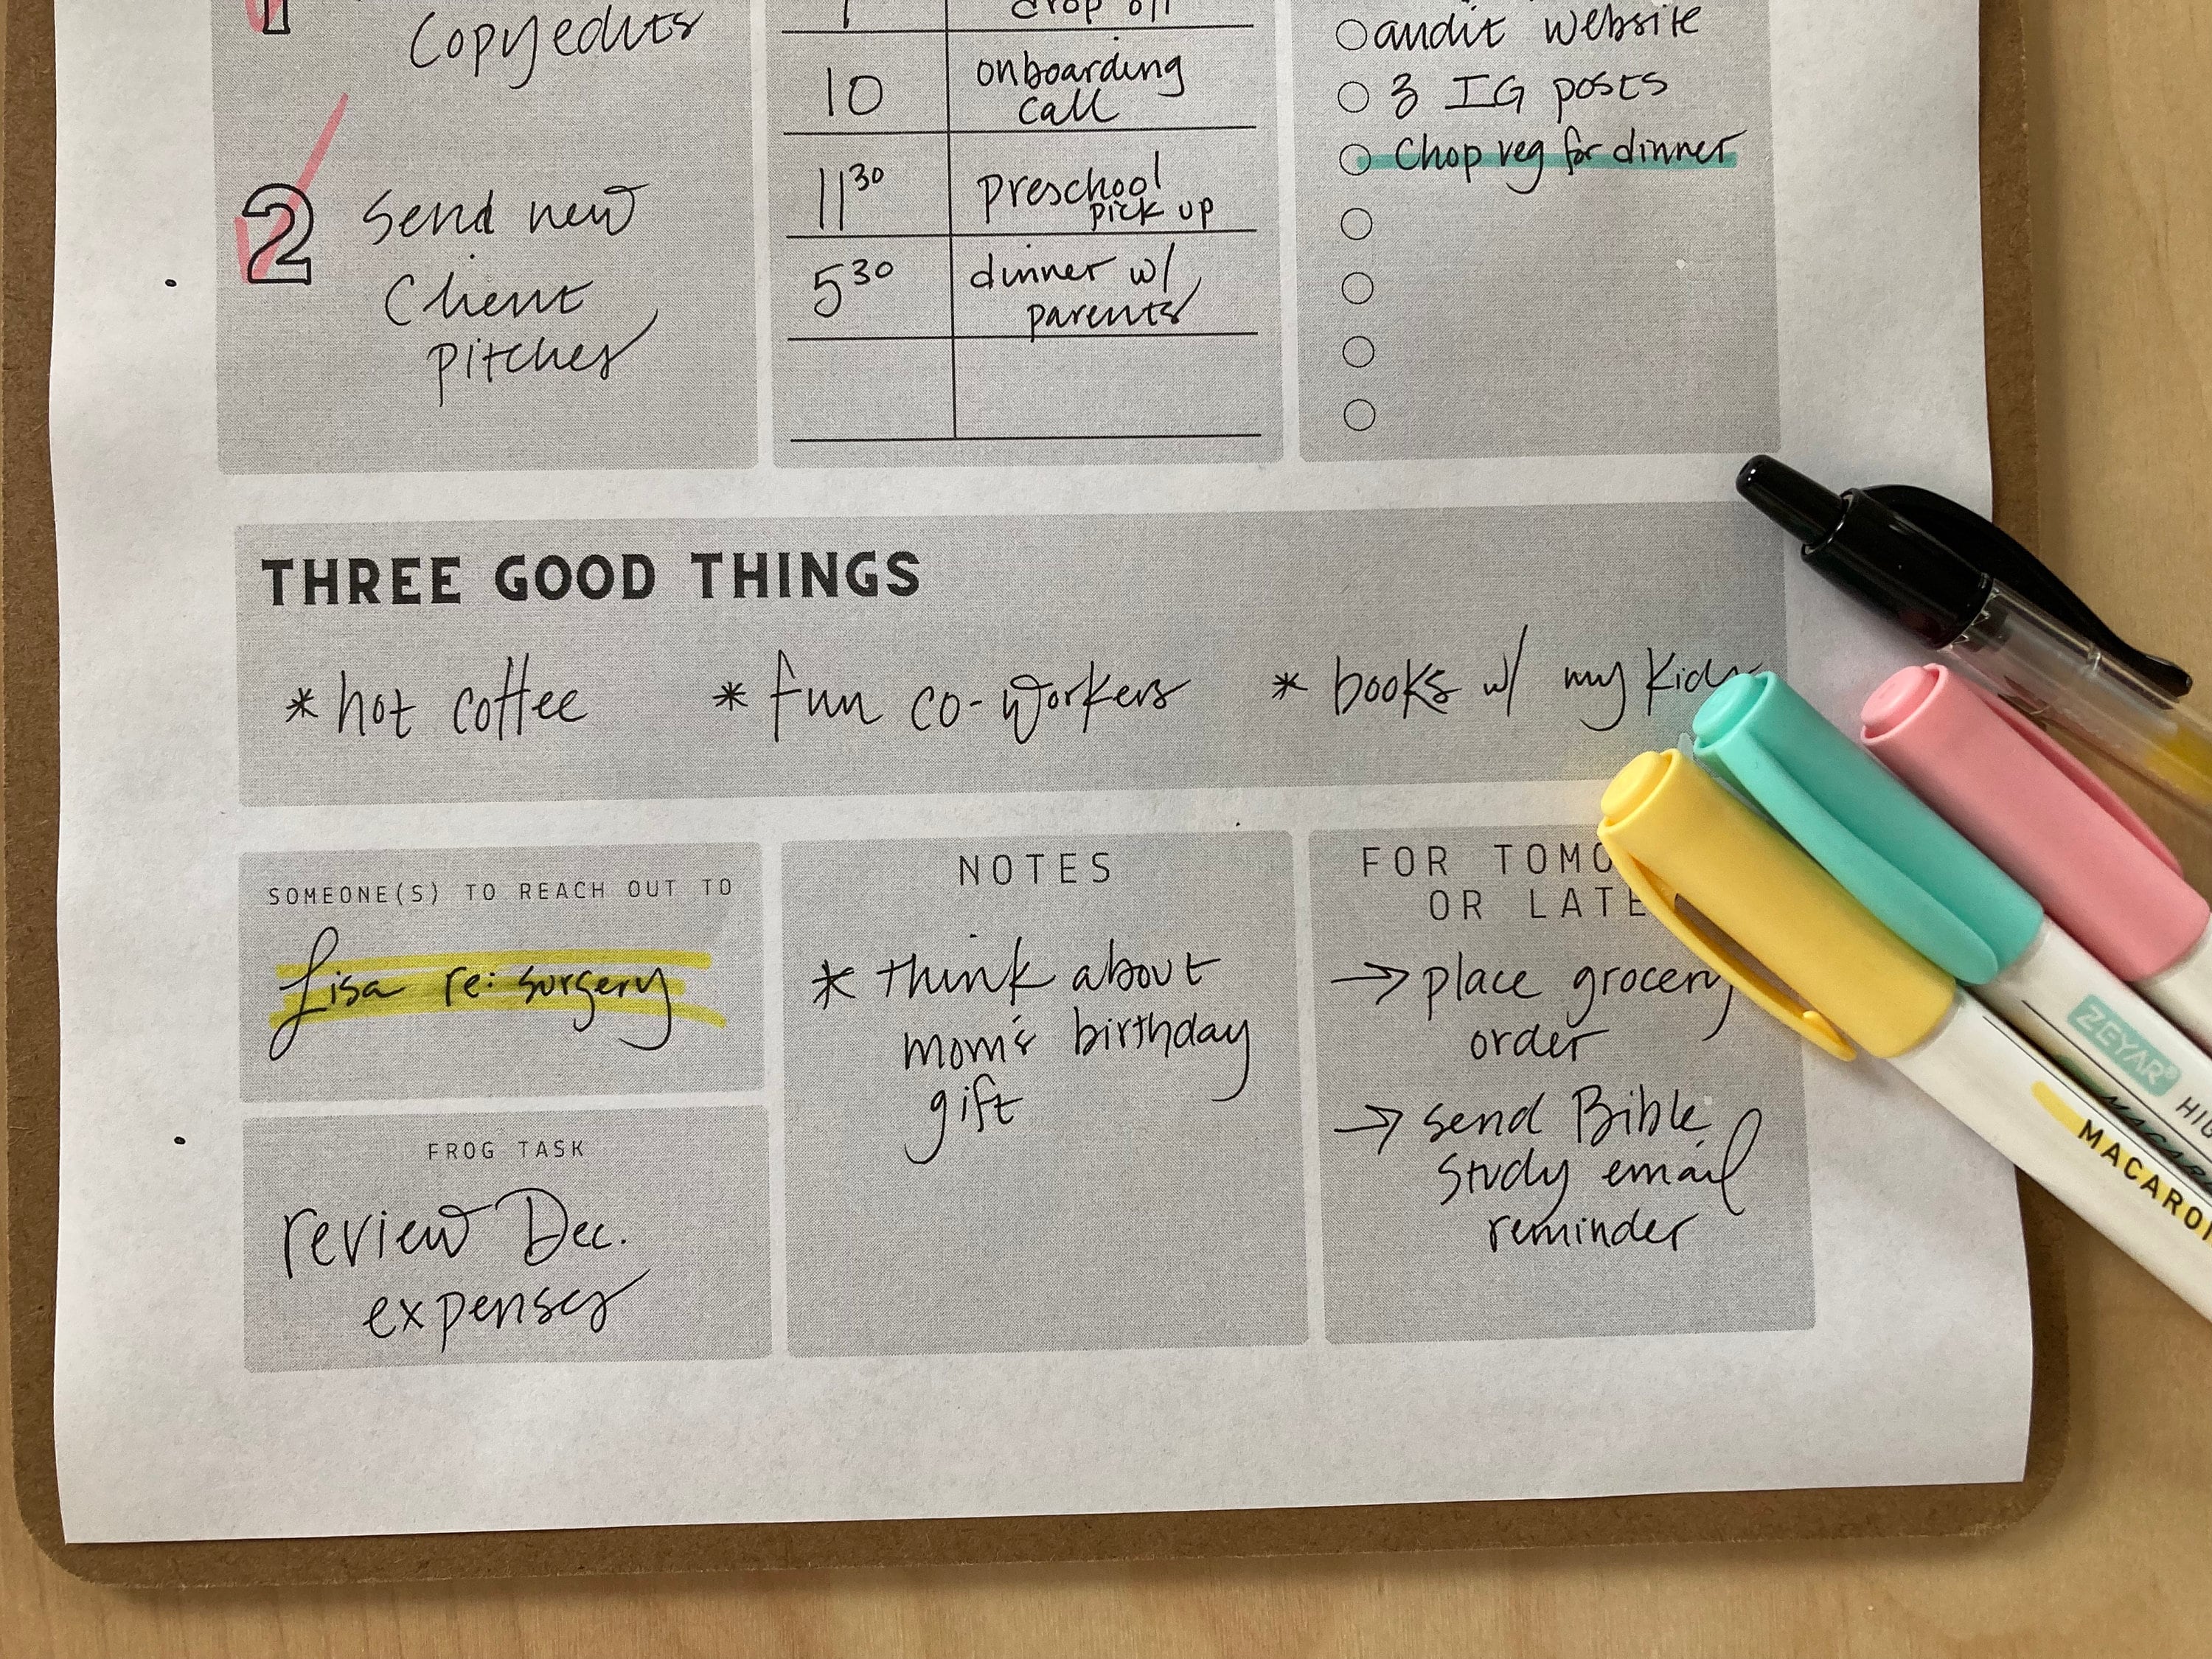 1
Copyedits
2 Send new
Client
pitches
drop off
10 onboarding
call
11 30 preschool
pick up
5 30 dinner w/
parents
audit website
3 IG posts
Chop veg for dinner
THREE GOOD THINGS
* hot coffee * fun co-workers * books w/ my kids
SOMEONE(S) TO REACH OUT TO
Lisa re: surgery
FROG TASK
review Dec.
expenses
NOTES
* think about
mom's birthday
gift
FOR TOMO
OR LATE
→ place grocery
order
→ send Bible
Study email
reminder
ZEYAR®
MACARO